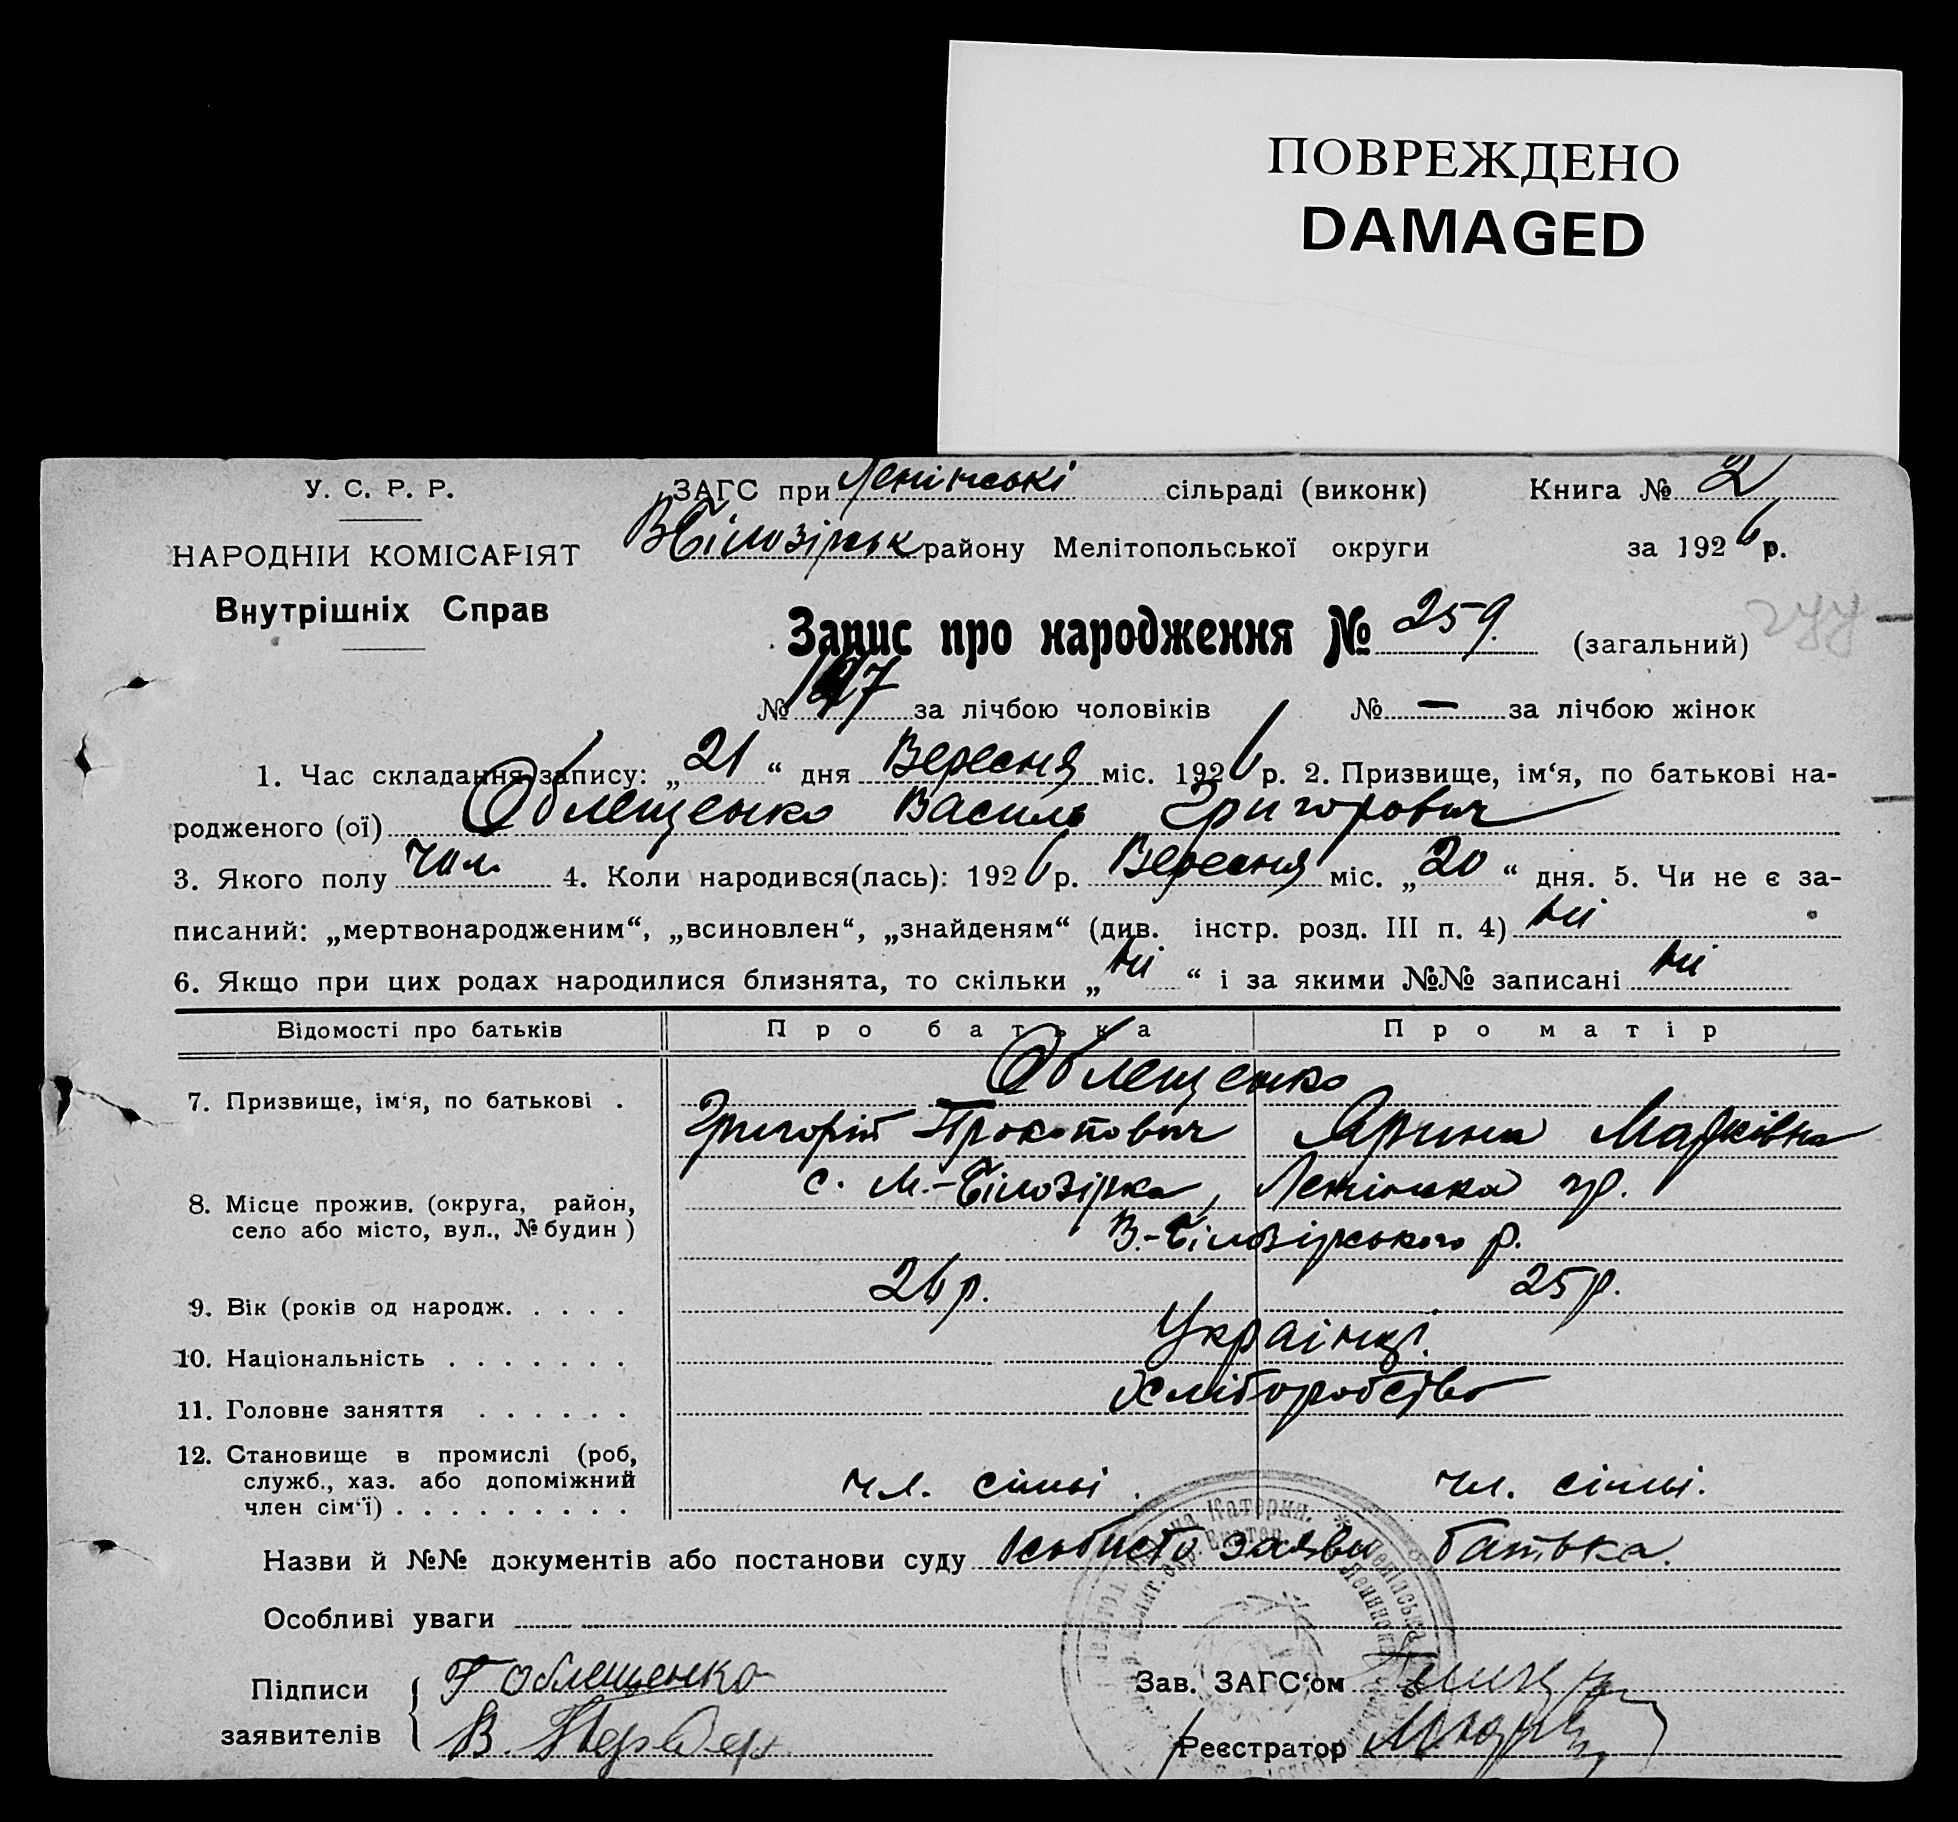 ПОВРЕЖДЕНО
DAMAGED
У. С. Р. Р.
НАРОДНІЙ КОМІСАРІЯТ
Внутрішніх Справ
ЗАГС при Ленінські сільраді (виконк) Книга № 2
ВБілозірськ району Мелітопольської округи за 1926 р.
Запис про народження № 259. (загальний) 277
№ 127 за лічбою чоловіків № — за лічбою жінок
1. Час складання запису: „21“ дня Вересня міс. 1926 р. 2. Призвище, ім‘я, по батькові на-
родженого (ої) Облещенко Василь Григорович
3. Якого полу чол. 4. Коли народився(лась): 1926 р. Вересня міс. „20“ дня. 5. Чи не є за-
писаний: „мертвонародженим“, „всиновлен“, „знайденям“ (див. інстр. розд. III п. 4) ні
6. Якщо при цих родах народилися близнята, то скільки „ні“ і за якими №№ записані ні
Відомості про батьків Про батька Про матір
7. Призвище, ім‘я, по батькові . Облещенко
Григорій Прокопович Ярина Марківна
8. Місце прожив. (округа, район, с. М.-Білозірка, Ленінська гр.
село або місто, вул., № будин ) В.-Білозірського р.
9. Вік (років од народж. . . . . 26 р. 25 р.
10. Національність . . . . . . . Українці.
11. Головне заняття . . . . . . Хліборобство
12. Становище в промислі (роб,
служб., хаз. або допоміжний
член сім‘ї) . . . . . . . . . чл. сімьі. чл. сімьі.
Назви й №№ документів або постанови суду особисто заява батька.
Особливі уваги
Підписи Г Облещенко
заявителів В.
Зав. ЗАГС‘ом
Реєстратор